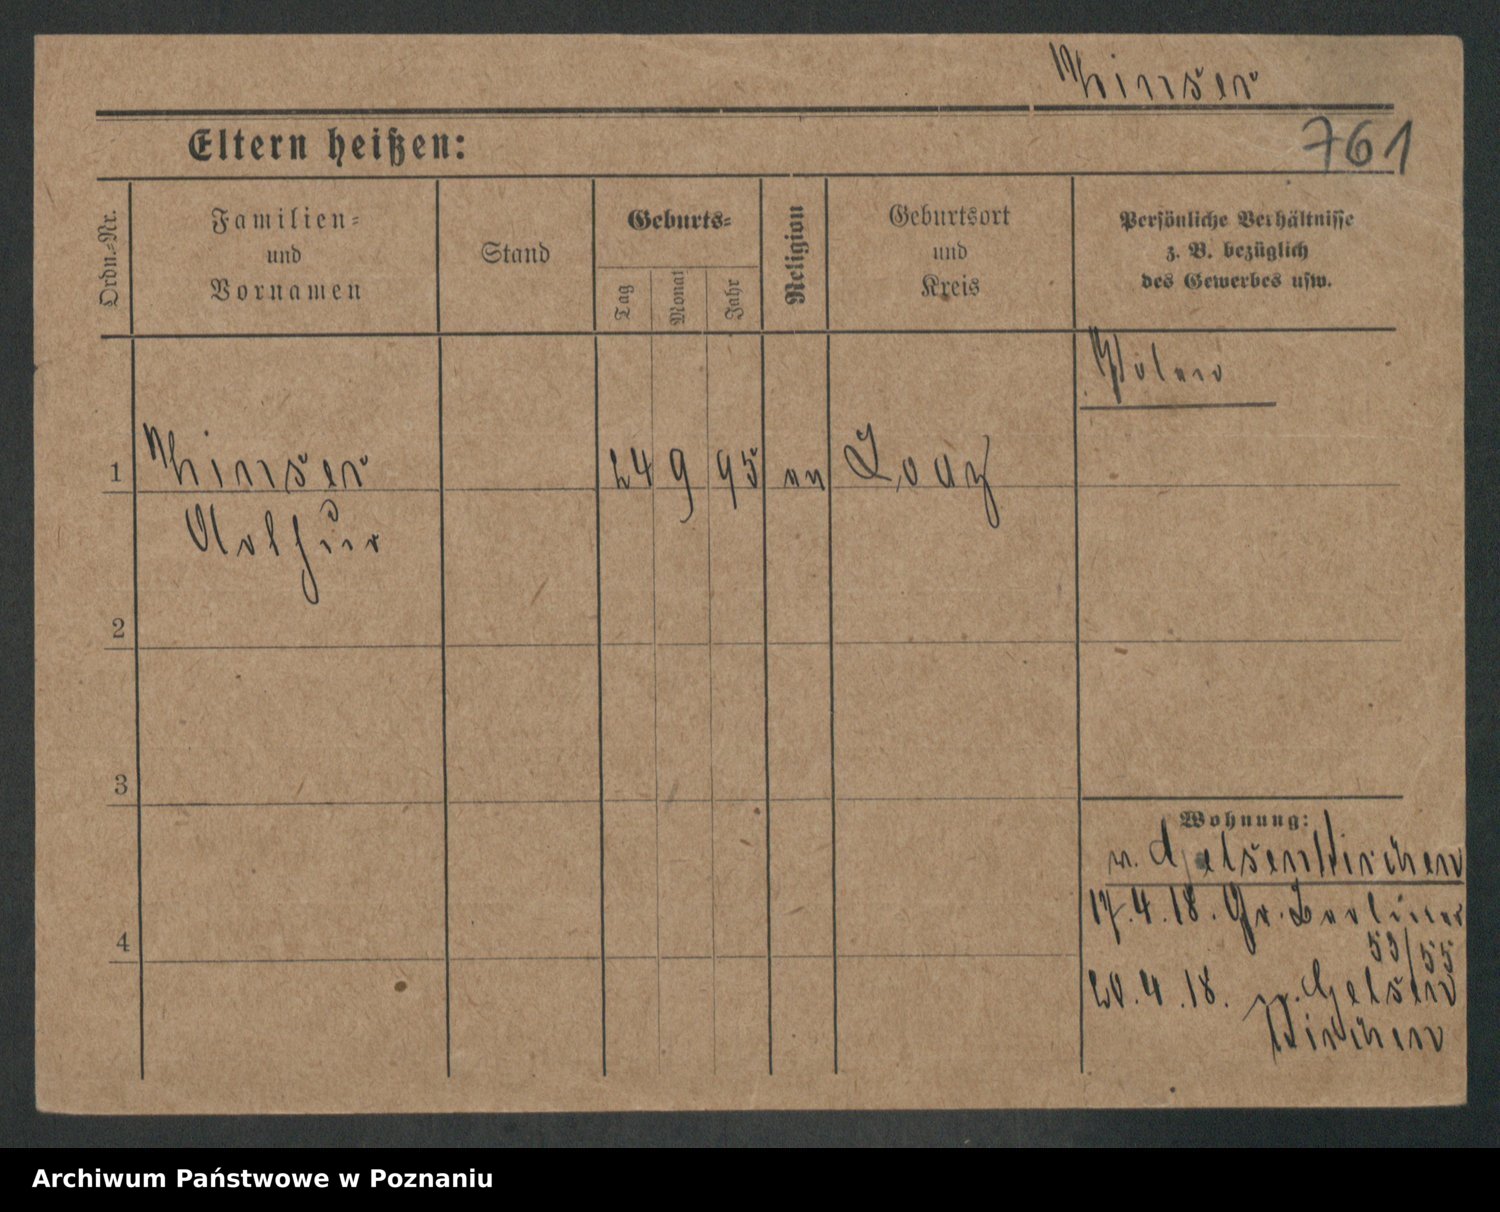 Minser
761
Eltern heißen:
Ordn.-Nr.
Familien-
und
Vornamen
Stand
Geburts-
Tag
Monat
Jahr
Religion
Geburtsort
und
Kreis
Persönliche Verhältnisse
z. B. bezüglich
des Gewerbes usw.
Polen
1
Minser
24 9 95
Lodz
Arthur
2
3
4
Wohnung:
v. Gelsenkirchen
17.4.18. Gr. Berliner
53/55
20.4.18. n. Gelsen
kirchen
Archiwum Państwowe w Poznaniu